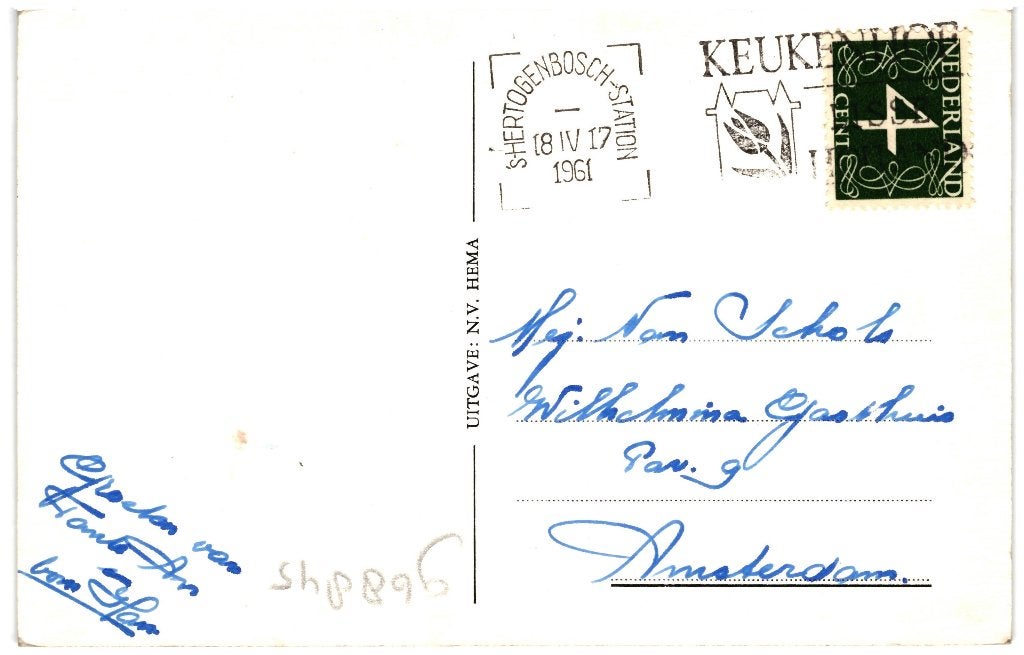 's-HERTOGENBOSCH-STATION
18 IV 17
1961
KEUKENHOF
LISSE
NEDERLAND
4
CENT
UITGAVE: N.V. HEMA
Mej. Nan Schols
Wilhelmina Gasthuis
Pav. 9
Amsterdam.
Groeten van
Tante An
en
oom Ham